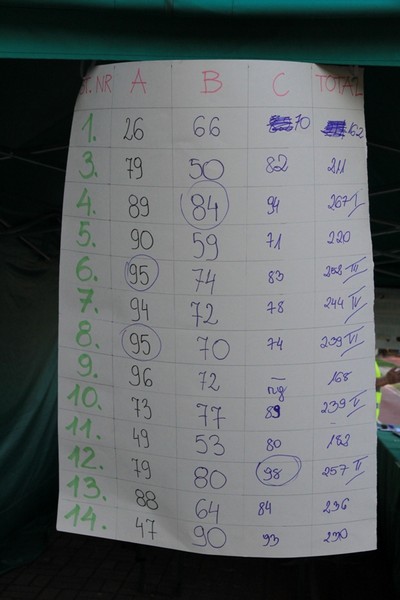 ST. NR A B C TOTAL
1. 26 66 70 162
3. 79 50 82 211
4. 89 84 94 267 I
5. 90 59 71 220
6. 95 74 83 252 III
7. 94 72 78 244 IV
8. 95 70 74 239 VI
9. 96 72 — 168
10. 73 77 89 239 V
11. 49 53 80 182
12. 79 80 98 257 II
13. 88 64 84 236
14. 47 90 93 230